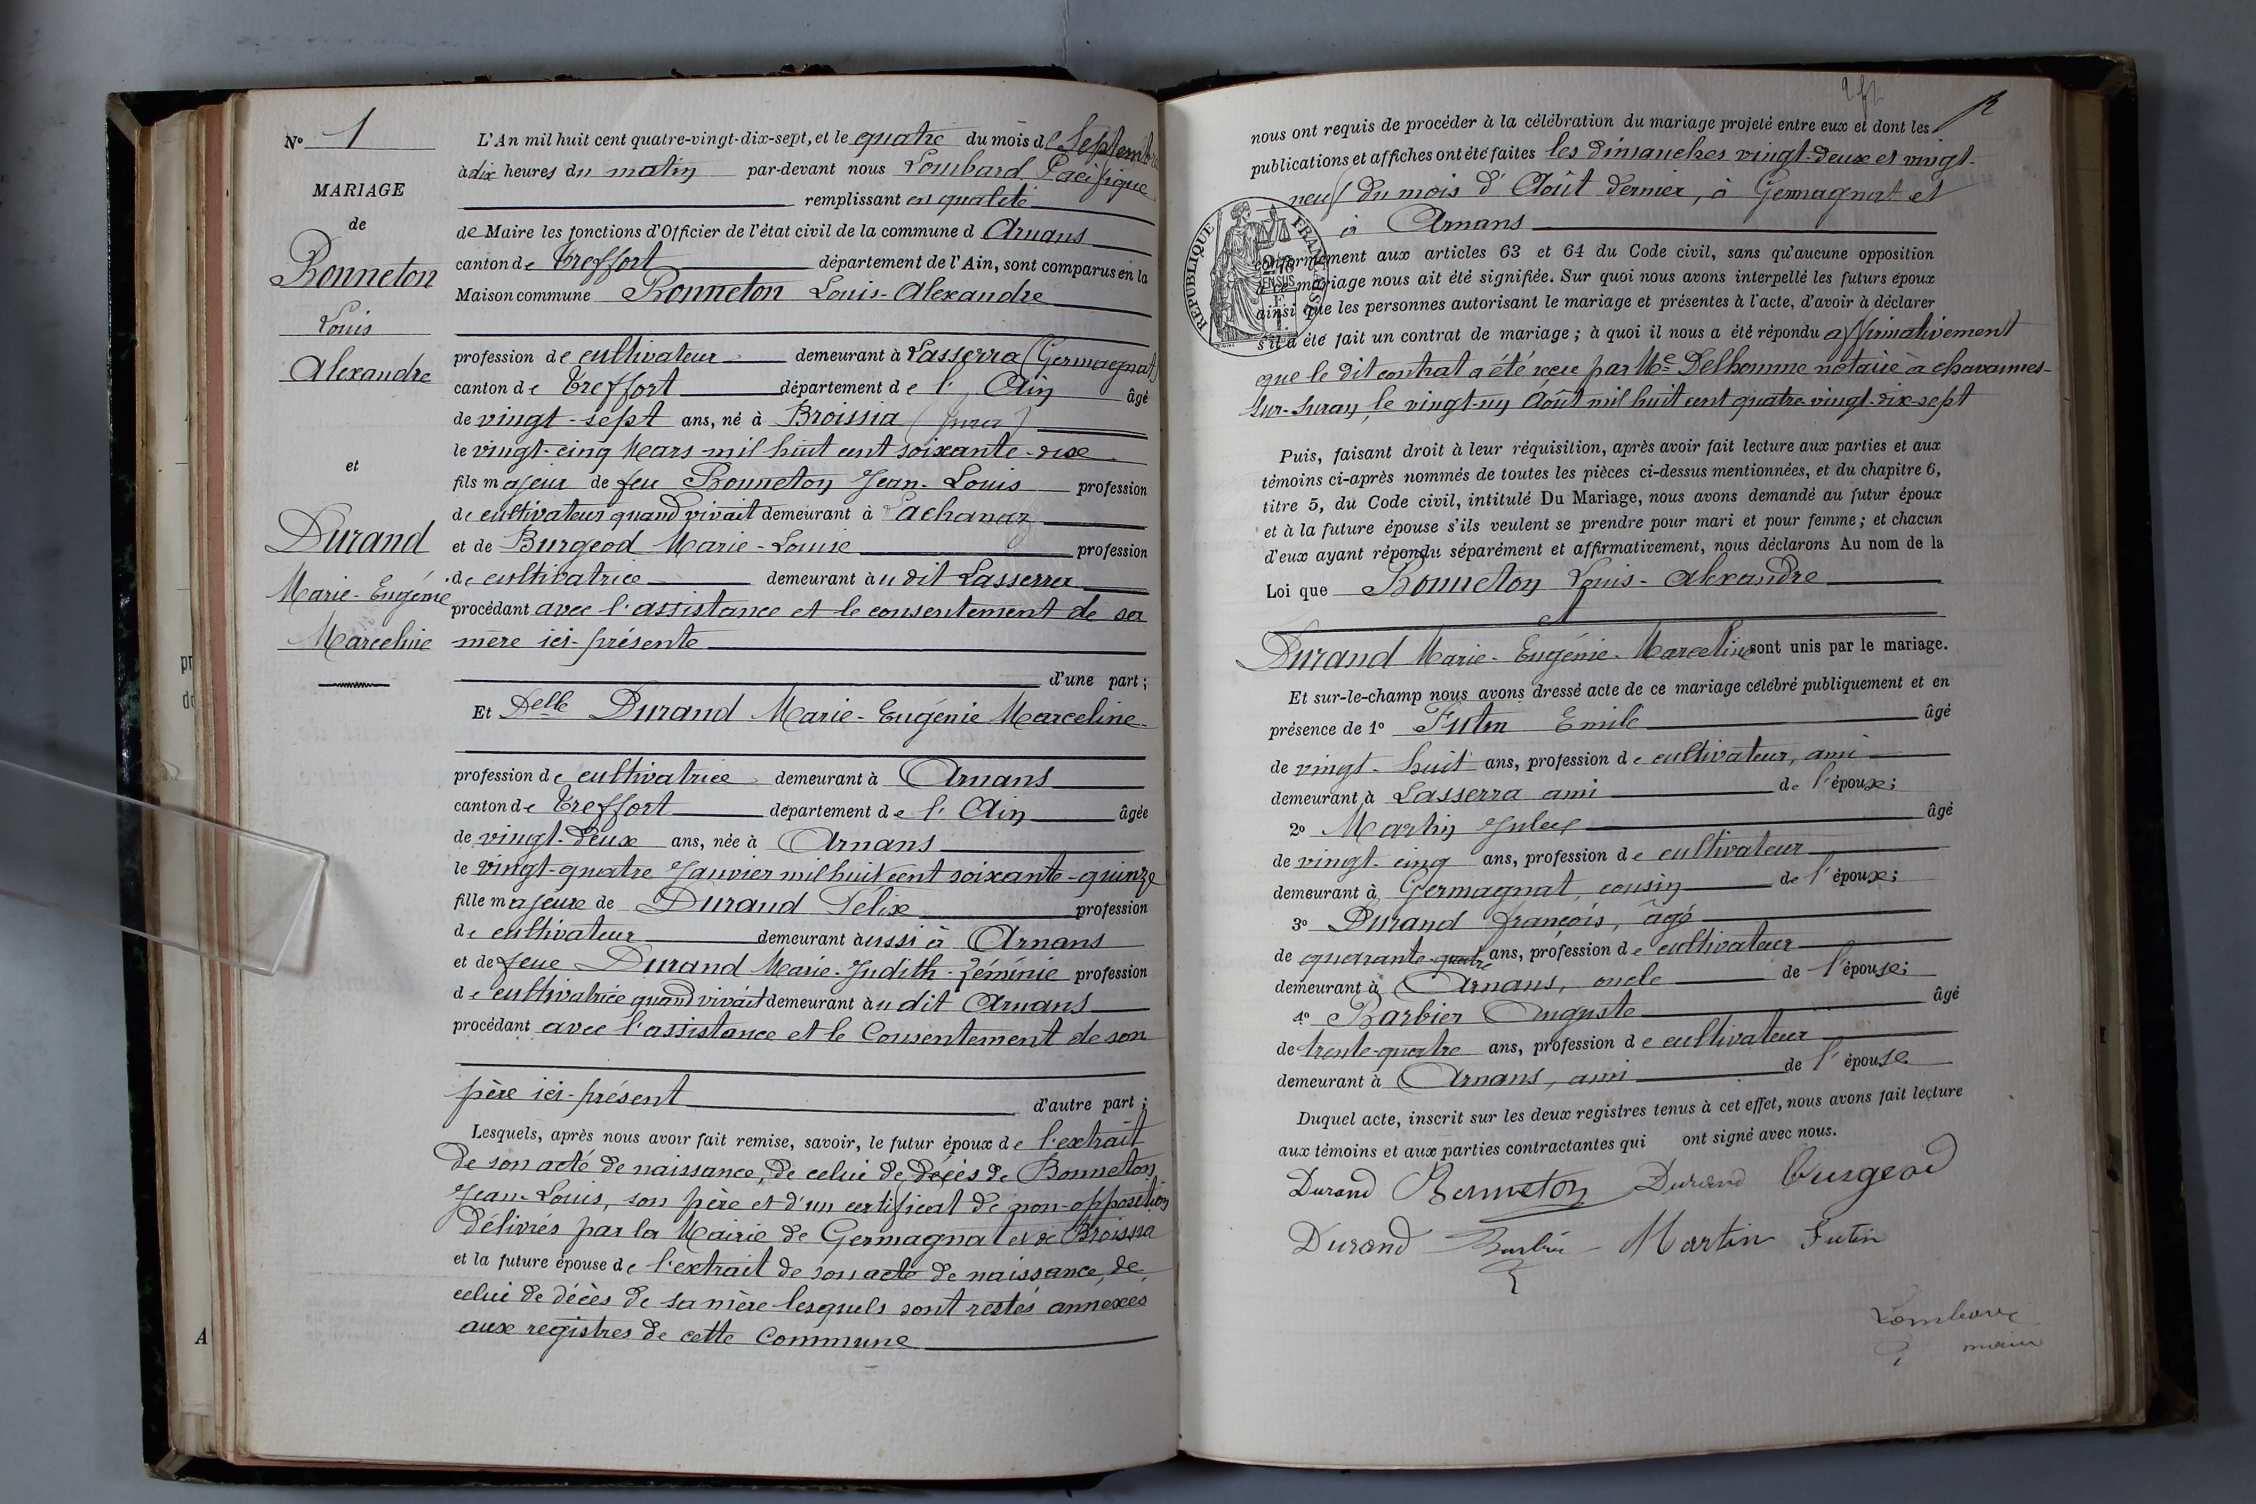 N° 1
MARIAGE
de
Bonneton
Louis
Alexandre
et
Durand
Marie-Eugénie
Marceline
L'An mil huit cent quatre-vingt-dix-sept, et le quatre du mois de Septembre
à dix heures du matin par-devant nous Lombard Pacifique
remplissant en qualité
de Maire les fonctions d'Officier de l'état civil de la commune d Arnans
canton de Treffort département de l'Ain, sont comparus en la
Maison commune Bonneton Louis-Alexandre
profession de cultivateur demeurant à Lasserra (Germagnat)
canton de Treffort département de l'Ain âgé
de vingt-sept ans, né à Broissia (Jura)
le vingt-cinq Mars mil huit cent soixante-dix
fils majeur de feu Bonneton Jean-Louis profession
de cultivateur quand vivait demeurant à Lachanaz
et de Burgeod Marie-Louise profession
de cultivatrice demeurant au dit Lasserra
procédant avec l'assistance et le consentement de sa
mère ici-présente
d'une part;
Et Delle Durand Marie-Eugénie Marceline
profession de cultivatrice demeurant à Arnans
canton de Treffort département de l'Ain âgée
de vingt-deux ans, née à Arnans
le vingt-quatre Janvier mil huit cent soixante-quinze
fille majeure de Durand Félix profession
de cultivateur demeurant aussi à Arnans
et de feue Durand Marie-Judith-Zéminie profession
de cultivatrice quand vivait demeurant au dit Arnans
procédant avec l'assistance et le Consentement de son
père ici-présent d'autre part;
Lesquels, après nous avoir fait remise, savoir, le futur époux de l'extrait
de son acte de naissance, de celui de décès de Bonneton
Jean-Louis, son père et d'un certificat de non-opposition
délivrés par la Mairie de Germagnat et de Broissia
et la future épouse de l'extrait de son acte de naissance, de
celui de décès de sa mère lesquels sont restés annexés
aux registres de cette Commune
nous ont requis de procéder à la célébration du mariage projeté entre eux et dont les
publications et affiches ont été faites les dimanches vingt-deux et vingt-
neuf du mois d'Août dernier, à Germagnat et
à Arnans
RÉPUBLIQUE FRANÇAISE
conformément aux articles 63 et 64 du Code civil, sans qu'aucune opposition
à ce mariage nous ait été signifiée. Sur quoi nous avons interpellé les futurs époux
ainsi que les personnes autorisant le mariage et présentes à l'acte, d'avoir à déclarer
s'il a été fait un contrat de mariage; à quoi il nous a été répondu affirmativement
que le dit contrat a été reçu par Me Delhomme notaire à Chavannes-
sur-Suran, le vingt-un Août mil huit cent quatre-vingt-dix-sept
Puis, faisant droit à leur réquisition, après avoir fait lecture aux parties et aux
témoins ci-après nommés de toutes les pièces ci-dessus mentionnées, et du chapitre 6,
titre 5, du Code civil, intitulé Du Mariage, nous avons demandé au futur époux
et à la future épouse s'ils veulent se prendre pour mari et pour femme; et chacun
d'eux ayant répondu séparément et affirmativement, nous déclarons Au nom de la
Loi que Bonneton Louis-Alexandre
et
Durand Marie-Eugénie-Marceline sont unis par le mariage.
Et sur-le-champ nous avons dressé acte de ce mariage célébré publiquement et en
présence de 1° Futin Emile âgé
de vingt-huit ans, profession de cultivateur, ami
demeurant à Lasserra ami de l'époux;
2° Martin Jules âgé
de vingt-cinq ans, profession de cultivateur
demeurant à Germagnat, cousin de l'époux;
3° Durand françois, âgé
de quarante-quatre ans, profession de cultivateur
demeurant à Arnans, oncle de l'épouse;
4° Barbier Auguste âgé
de trente-quatre ans, profession de cultivateur
demeurant à Arnans, ami de l'épouse
Duquel acte, inscrit sur les deux registres tenus à cet effet, nous avons fait lecture
aux témoins et aux parties contractantes qui ont signé avec nous.
Durand Bonneton Durand Burgeod
Durand Barbier Martin Futin
Lombard
maire